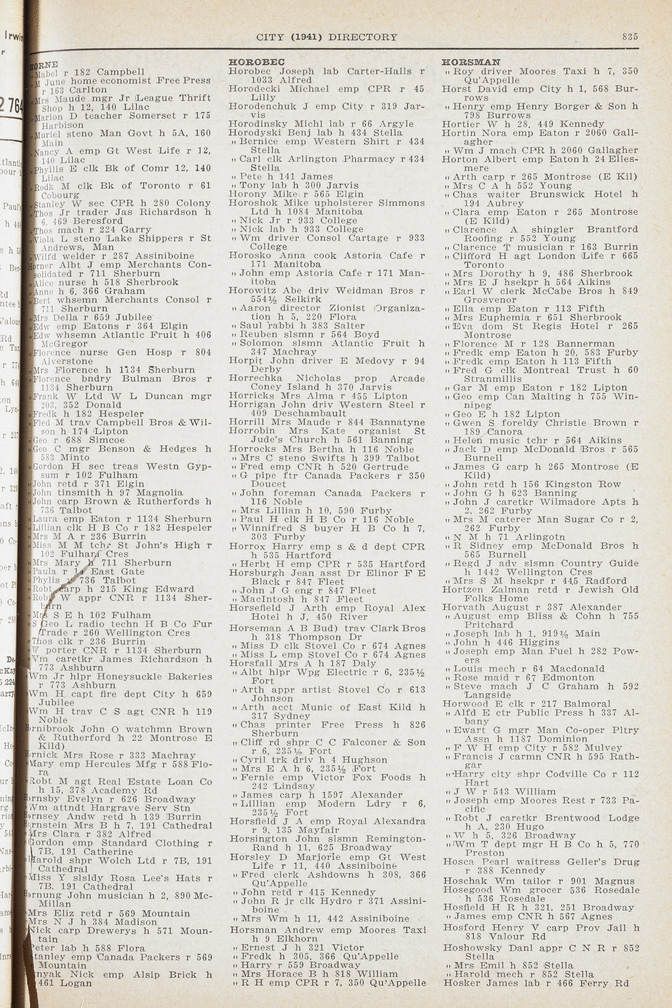 CITY (1941) DIRECTORY 835
HORNE
Mabel r 182 Campbell
M June home economist Free Press
r 163 Carlton
Mrs Maude mgr Jr League Thrift
Shop h 12, 140 Lilac
Marion D teacher Somerset r 175
Harbison
Muriel steno Man Govt h 5A, 160
Main
Nancy A emp Gt West Life r 12,
140 Lilac
Phyllis E clk Bk of Comr 12, 140
Lilac
Rodk M clk Bk of Toronto r 61
Cobourg
Stanley W sec CPR h 280 Colony
Thos Jr trader Jas Richardson h
6, 469 Beresford
Thos mach r 224 Garry
Viola L steno Lake Shippers r St
Andrews, Man
Wilfd welder r 287 Assiniboine
Horner Albt J emp Merchants Con-
solidated r 711 Sherburn
Alice nurse h 518 Sherbrook
Anne h 6, 366 Graham
Bert whsemn Merchants Consol r
711 Sherburn
Mrs Della r 659 Jubilee
Edw emp Eatons r 364 Elgin
Edw whsemn Atlantic Fruit h 406
McGregor
Florence nurse Gen Hosp r 804
Alverstone
Mrs Florence h 1134 Sherburn
Florence bndry Bulman Bros r
1134 Sherburn
Frank W Ltd W L Duncan mgr
203, 352 Donald
Fredk h 182 Hespeler
Fled M trav Campbell Bros & Wil-
son h 174 Lipton
Geo r 688 Simcoe
Geo C mgr Benson & Hedges h
583 Minto
Gordon H sec treas Westn Gyp-
sum r 102 Fulham
John r 371 Elgin
John tinsmith h 97 Magnolia
John carp Brown & Rutherfords h
736 Talbot
Laura emp Eaton r 1134 Sherburn
Lillian clk H B Co r 182 Hespeler
Mrs M A r 236 Burrin
Miss M M tchr St John's High r
102 Fulham Cres
Mrs Mary h 711 Sherburn
Paula r East Gate
Phylis 736 Talbot
carp h 215 King Edward
W appr CNR r 1134 Sher-
Mrs S E h 102 Fulham
Geo L radio techn H B Co Fur
Trade r 260 Wellington Cres
Thos clk r 236 Burrin
W porter CNR r 1134 Sherburn
Wm caretkr James Richardson h
773 Ashburn
Wm Jr hlpr Honeysuckle Bakeries
r 773 Ashburn
Wm H capt fire dept City h 659
Jubilee
Wm H trav C S agt CNR h 119
Noble
Hornibrook John O watchmn Brown
& Rutherford h 22 Montrose E
Kild)
Mrs Rose r 333 Machray
Mary emp Hercules Mfg r 588 Flo-
ra
Robt M agt Real Estate Loan Co
h 15, 378 Academy Rd
Hornsby Evelyn r 626 Broadway
Wm attndt Hargrave Serv Stn
Hornsey Andw retd h 139 Burrin
Hornstein Mrs B h 7, 191 Cathedral
Mrs Clara r 382 Alfred
Gordon emp Standard Clothing r
7B, 191 Catherine
Harold shpr Wolch Ltd r 7B, 191
Cathedral
Miss Y slsldy Rosa Lee's Hats r
7B, 191 Cathedral
Hornung John musician h 2, 890 Mc-
Millan
Mrs Eliz retd r 569 Mountain
Mrs N J h 384 Madison
Nick carp Drewerys h 571 Moun-
tain
Peter lab h 588 Flora
Stanley emp Canada Packers r 569
Mountain
Nick emp Alsip Brick h
461 Logan
HOROBEC
Horobec Joseph lab Carter-Halls r
1033 Alfred
Horodecki Michael emp CPR r 45
Lilly
Horodenchuk J emp City r 319 Jar-
vis
Horodinsky Michl lab r 66 Argyle
Horodyski Benj lab h 434 Stella
" Bernice emp Western Shirt r 434
Stella
" Carl clk Arlington Pharmacy r 434
Stella
" Pete h 141 James
" Tony lab h 300 Jarvis
Horony Mike r 565 Elgin
Horoshok Mike upholsterer Simmons
Ltd h 1084 Manitoba
" Nick Jr r 933 College
" Nick lab h 933 College
" Wm driver Consol Cartage r 933
College
Horosko Anna cook Astoria Cafe r
171 Manitoba
" John emp Astoria Cafe r 171 Man-
itoba
Horowitz Abe driv Weidman Bros r
554½ Selkirk
" Aaron director Zionist Organiza-
tion h 5, 220 Flora
" Saul rabbi h 383 Salter
" Reuben slsmn r 564 Boyd
" Solomon slsmn Atlantic Fruit h
347 Machray
Horpit John driver E Medovy r 94
Derby
Horrechka Nicholas prop Arcade
Coney Island h 370 Jarvis
Horricks Mrs Alma r 455 Lipton
Horrigan John driv Western Steel r
409 Deschambault
Horrill Mrs Maude r 844 Bannatyne
Horrobin Mrs Kate organist St
Jude's Church h 561 Banning
Horrocks Mrs Bertha h 116 Noble
" Mrs C steno Swifts h 399 Talbot
" Fred emp CNR h 520 Gertrude
" G pipe ftr Canada Packers r 350
Doucet
" John foreman Canada Packers r
116 Noble
" Mrs Lillian h 10, 590 Furby
" Paul H clk H B Co r 116 Noble
" Winnifred S buyer H B Co h 7,
303 Furby
Horrox Harry emp s & d dept CPR
h 535 Hartford
" Herbt H emp CPR r 535 Hartford
Horsburgh Jean asst Dr Elinor F E
Black r 847 Fleet
" John J G eng r 847 Fleet
" MacIntosh h 847 Fleet
Horsefield J Arth emp Royal Alex
Hotel h J, 450 River
Horseman A B Bud) trav Clark Bros
h 318 Thompson Dr
" Miss D clk Stovel Co r 674 Agnes
" Miss L emp Stovel Co r 674 Agnes
Horsfall Mrs A h 187 Daly
" Albt hlpr Wpg Electric r 6, 235½
Fort
" Arth appr artist Stovel Co r 613
Johnson
" Arth acct Munic of East Kild h
317 Sydney
" Chas printer Free Press h 826
Sherburn
" Cliff rd shpr C C Falconer & Son
r 6, 235½ Fort
" Cyril trk driv h 4 Hughson
" Mrs E A h 6, 235½ Fort
" Fernie emp Victor Fox Foods h
242 Lindsay
" James carp h 1597 Alexander
" Lillian emp Modern Ldry r 6,
235½ Fort
Horsfield J A emp Royal Alexandra
r 9, 135 Mayfair
Horsington John slsmn Remington-
Rand h 11, 625 Broadway
Horsley D Marjorie emp Gt West
Life r 11, 440 Assiniboine
" Fred clerk Ashdowns h 308, 366
Qu'Appelle
" John retd r 415 Kennedy
" John R jr clk Hydro r 371 Assini-
boine
" Mrs Wm h 11, 442 Assiniboine
Horsman Andrew emp Moores Taxi
h 9 Elkhorn
" Ernest J h 321 Victor
" Fredk h 305, 366 Qu'Appelle
" Harry r 559 Broadway
" Mrs Horace B h 818 William
" R H emp CPR r 7, 350 Qu'Appelle
HORSMAN
" Roy driver Moores Taxi h 7, 350
Qu'Appelle
Horst David emp City h 1, 568 Bur-
rows
" Henry emp Henry Borger & Son h
798 Burrows
Hortier W h 28, 449 Kennedy
Hortin Nora emp Eaton r 2060 Gall-
agher
" Wm J mach CPR h 2060 Gallagher
Horton Albert emp Eaton h 24 Elles-
mere
" Arth carp r 265 Montrose (E Kil)
" Mrs C A h 552 Young
" Chas waiter Brunswick Hotel h
194 Aubrey
" Clara emp Eaton r 265 Montrose
(E Kild)
" Clarence A shingler Brantford
Roofing r 552 Young
" Clarence T musician r 163 Burrin
" Clifford H agt London Life r 665
Toronto
" Mrs Dorothy h 9, 486 Sherbrook
" Mrs E J hsekpr h 564 Aikins
" Earl W clerk McCabe Bros h 849
Grosvenor
" Ella emp Eaton r 113 Fifth
" Mrs Euphemia r 651 Sherbrook
" Eva dom St Regis Hotel r 265
Montrose
" Florence M r 128 Bannerman
" Fredk emp Eaton h 20, 583 Furby
" Fredk emp Eaton h 113 Fifth
" Fred G clk Montreal Trust h 60
Stranmillis
" Gar M emp Eaton r 182 Lipton
" Geo emp Can Malting h 755 Win-
nipeg
" Geo E h 182 Lipton
" Gwen S foreldy Christie Brown r
189 Canora
" Helen music tchr r 564 Aikins
" Jack D emp McDonald Bros r 565
Burnell
" James G carp h 265 Montrose (E
Kild)
" John retd h 156 Kingston Row
" John G h 623 Banning
" John J caretkr Wilmadore Apts h
2, 262 Furby
" Mrs M caterer Man Sugar Co r 2,
262 Furby
" N M h 71 Arlingotn
" R Sidney emp McDonald Bros h
565 Burnell
" Regd J adv slsmn Country Guide
h 1442 Wellington Cres
" Mrs S M hsekpr r 445 Radford
Hortzen Zalman retd r Jewish Old
Folks Home
Horvath August r 387 Alexander
" August emp Bliss & Cohn h 755
Pritchard
" Joseph lab h 1, 919½ Main
" John h 446 Higgins
" Joseph emp Man Fuel h 282 Pow-
ers
" Louis mech r 64 Macdonald
" Rose maid r 67 Edmonton
" Steve mach J C Graham h 592
Langside
Horwood E clk r 217 Balmoral
" Alfd E ctr Public Press h 337 Al-
bany
" Ewart G mgr Man Co-oper Pltry
Assn h 1187 Dominion
" F W H emp City r 582 Mulvey
" Francis J carmn CNR h 595 Rath-
gar
" Harry city shpr Codville Co r 112
Hart
" J W r 543 William
" Joseph emp Moores Rest r 733 Pa-
cific
" Robt J caretkr Brentwood Lodge
h A, 230 Hugo
" W h 5, 326 Broadway
" Wm T dept mgr H B Co h 5, 770
Preston
Hosea Pearl waitress Geller's Drug
r 388 Kennedy
Hoschak Wm tailor r 901 Magnus
Hosegood Wm grocer 536 Rosedale
h 536 Rosedale
Hosfield H R h 321, 251 Broadway
" James emp CNR h 567 Agnes
Hosford Henry V carp Prov Jail h
818 Valour Rd
Hoshowsky Danl appr C N R r 852
Stella
" Mrs Emil h 852 Stella
" Harold mech r 852 Stella
Hosker James lab r 466 Ferry Rd